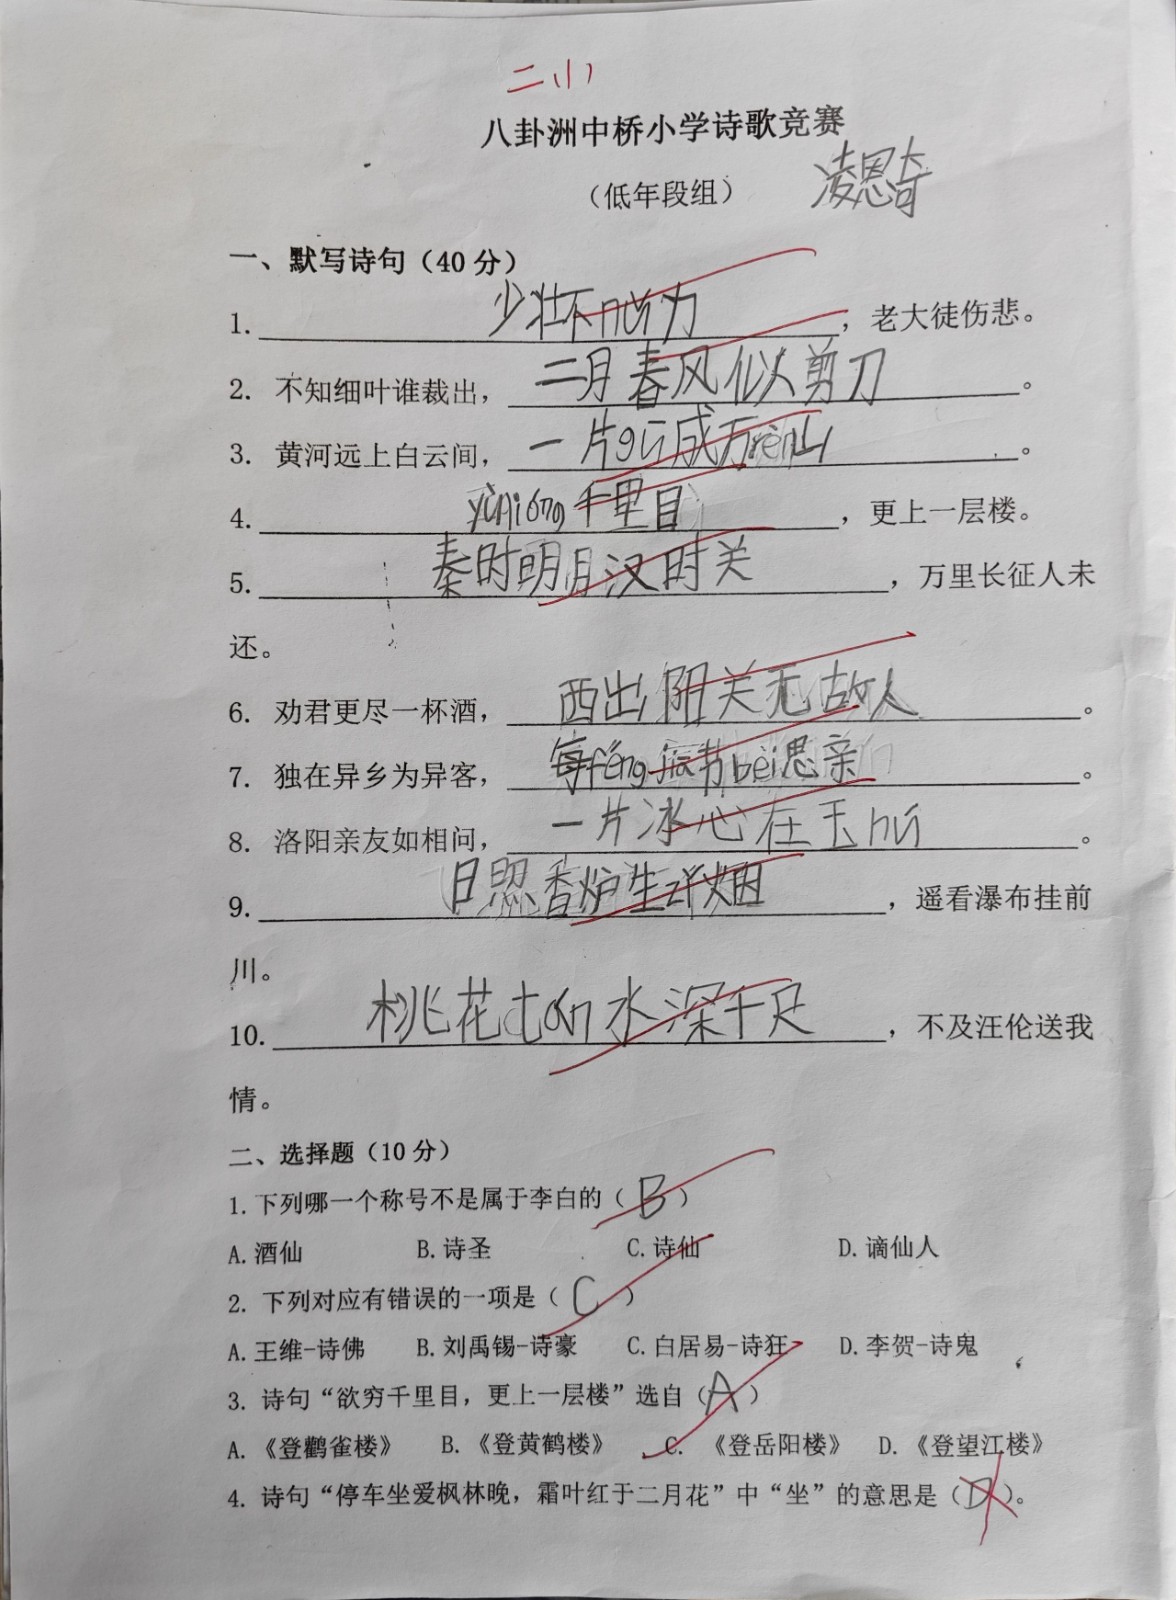 二(1)
八卦洲中桥小学诗歌竞赛
（低年段组） 凌恩奇
一、默写诗句（40分）
1. 少壮不nǔ力，老大徒伤悲。
2. 不知细叶谁裁出，二月春风似剪刀。
3. 黄河远上白云间，一片gū成万rèn山。
4. yùqióng千里目，更上一层楼。
5. 秦时明月汉时关，万里长征人未
还。
6. 劝君更尽一杯酒，西出阳关无故人。
7. 独在异乡为异客，每féngjiā节bèi思亲。
8. 洛阳亲友如相问，一片冰心在玉hú。
9. 日照香炉生zǐ烟，遥看瀑布挂前
川。
10. 桃花tán水深千尺，不及汪伦送我
情。
二、选择题（10分）
1. 下列哪一个称号不是属于李白的（B）
A. 酒仙 B. 诗圣 C. 诗仙 D. 谪仙人
2. 下列对应有错误的一项是（C）
A. 王维-诗佛 B. 刘禹锡-诗豪 C. 白居易-诗狂 D. 李贺-诗鬼
3. 诗句“欲穷千里目，更上一层楼”选自（A）
A.《登鹳雀楼》 B.《登黄鹤楼》 C.《登岳阳楼》 D.《登望江楼》
4. 诗句“停车坐爱枫林晚，霜叶红于二月花”中“坐”的意思是（D）。